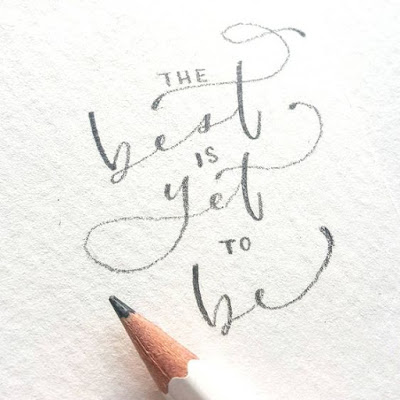 THE
best
IS
yet
TO
be